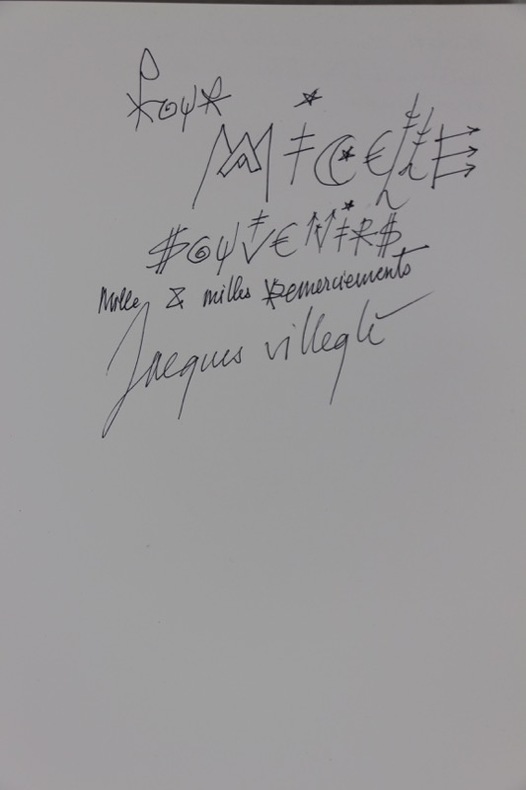 Pour
MiC€llE
$ouV€NiR$
Mille & milles Remerciements
Jacques villeglé